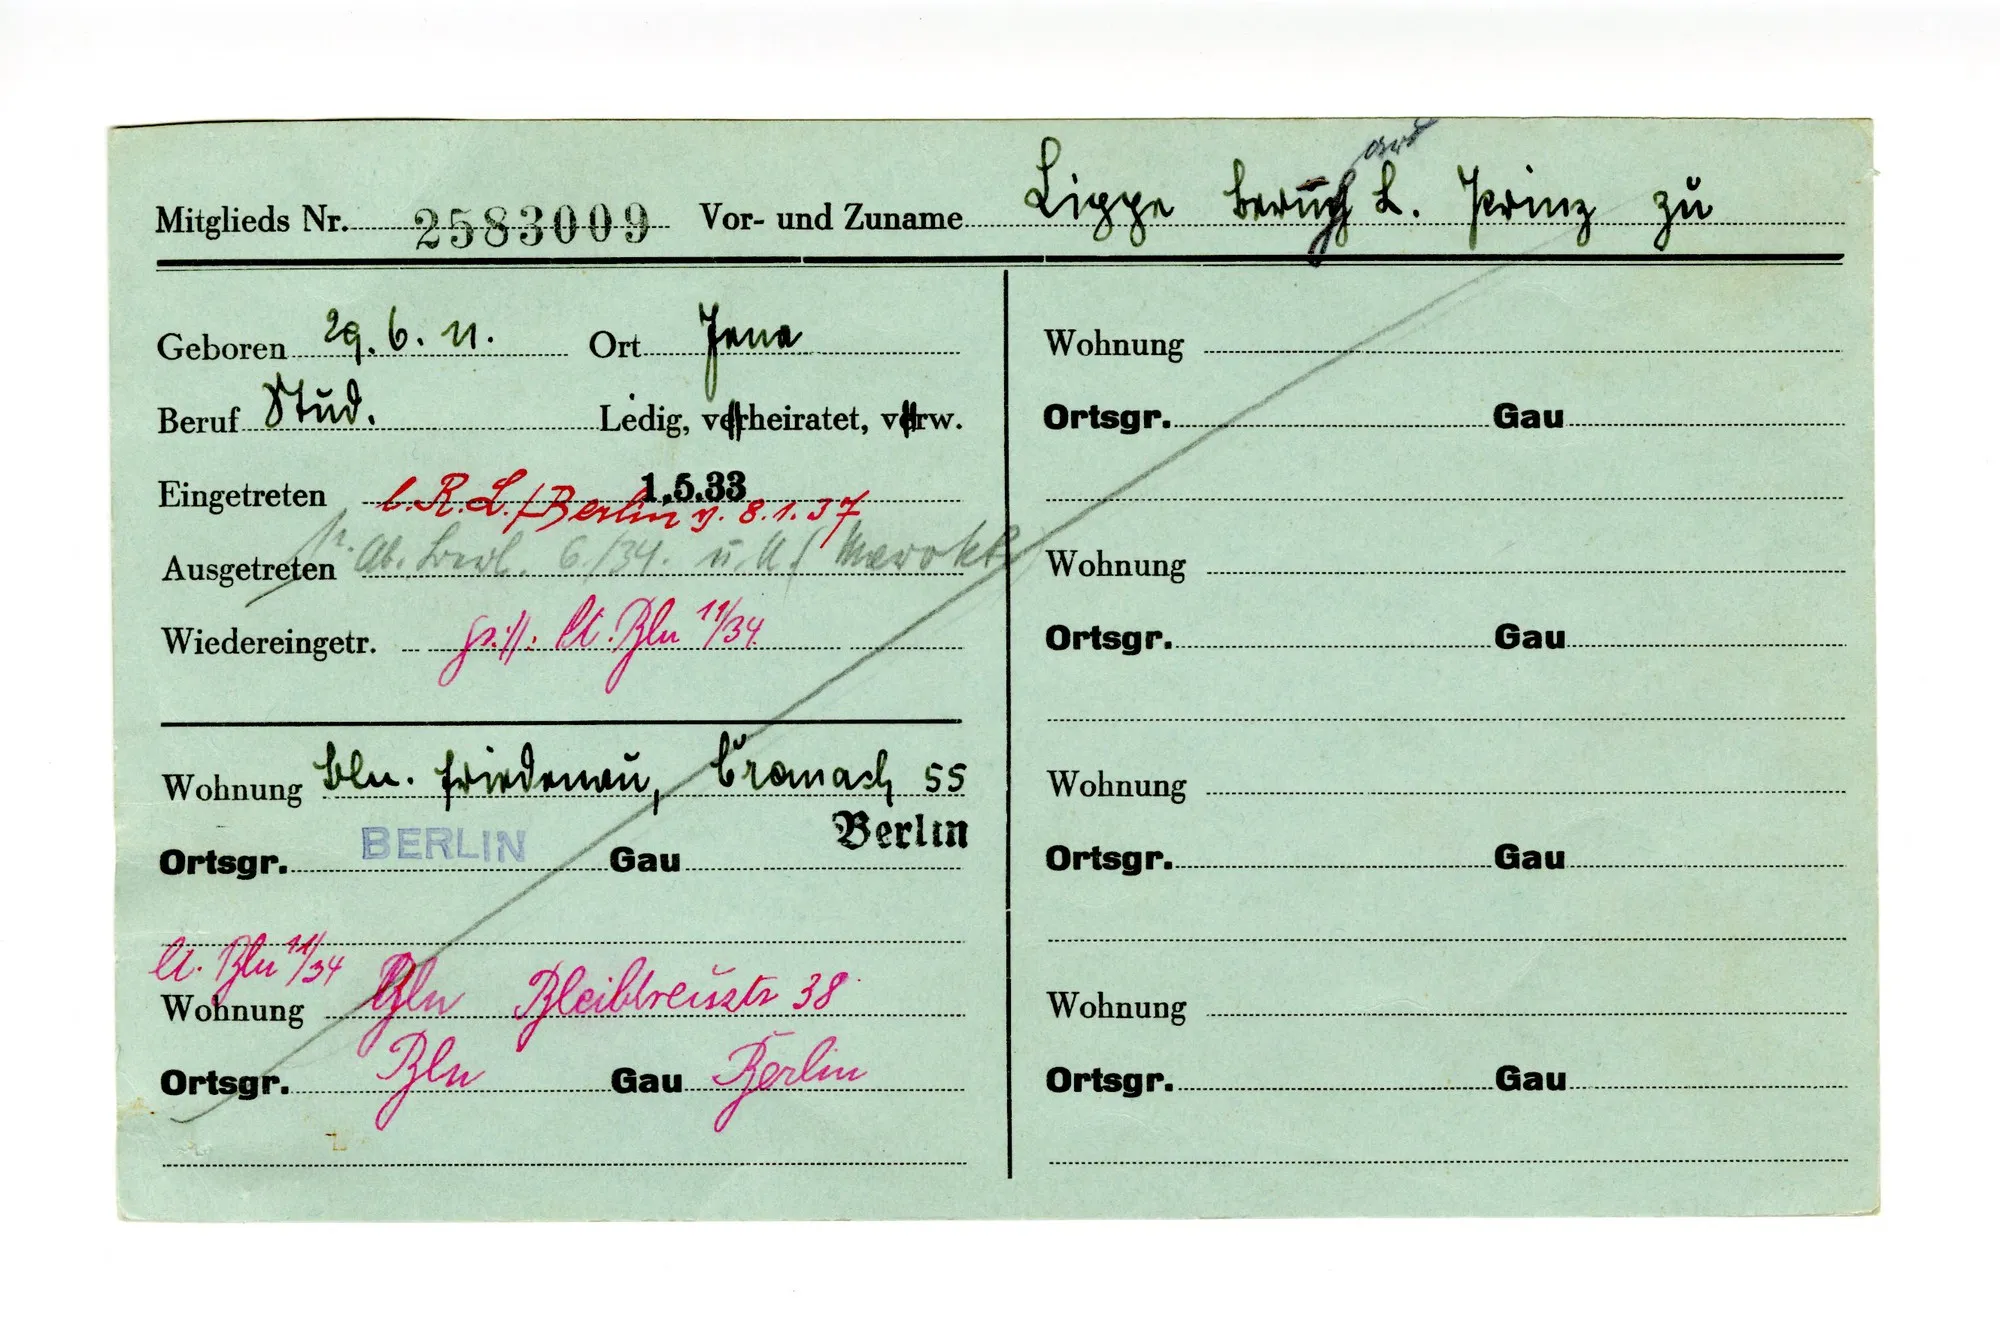 ard
Mitglieds Nr. 2583009 Vor- und Zuname Lippe Bernh L. Prinz zu
Geboren 29.6.11. Ort Jena
Beruf Stud. Ledig, verheiratet, verw.
Eingetreten 1.5.33
l. R.L./Berlin v. 8.1.37
Ausgetreten 6/34. u.
Wiedereingetr. lt. Bln 11/34
Wohnung Bln. Friedenau, Cranach 55
Ortsgr. BERLIN Gau Berlin
lt. Bln 11/34
Wohnung Bln Bleibtreustr 38
Ortsgr. Bln Gau Berlin
Wohnung
Ortsgr. Gau
Wohnung
Ortsgr. Gau
Wohnung
Ortsgr. Gau
Wohnung
Ortsgr. Gau